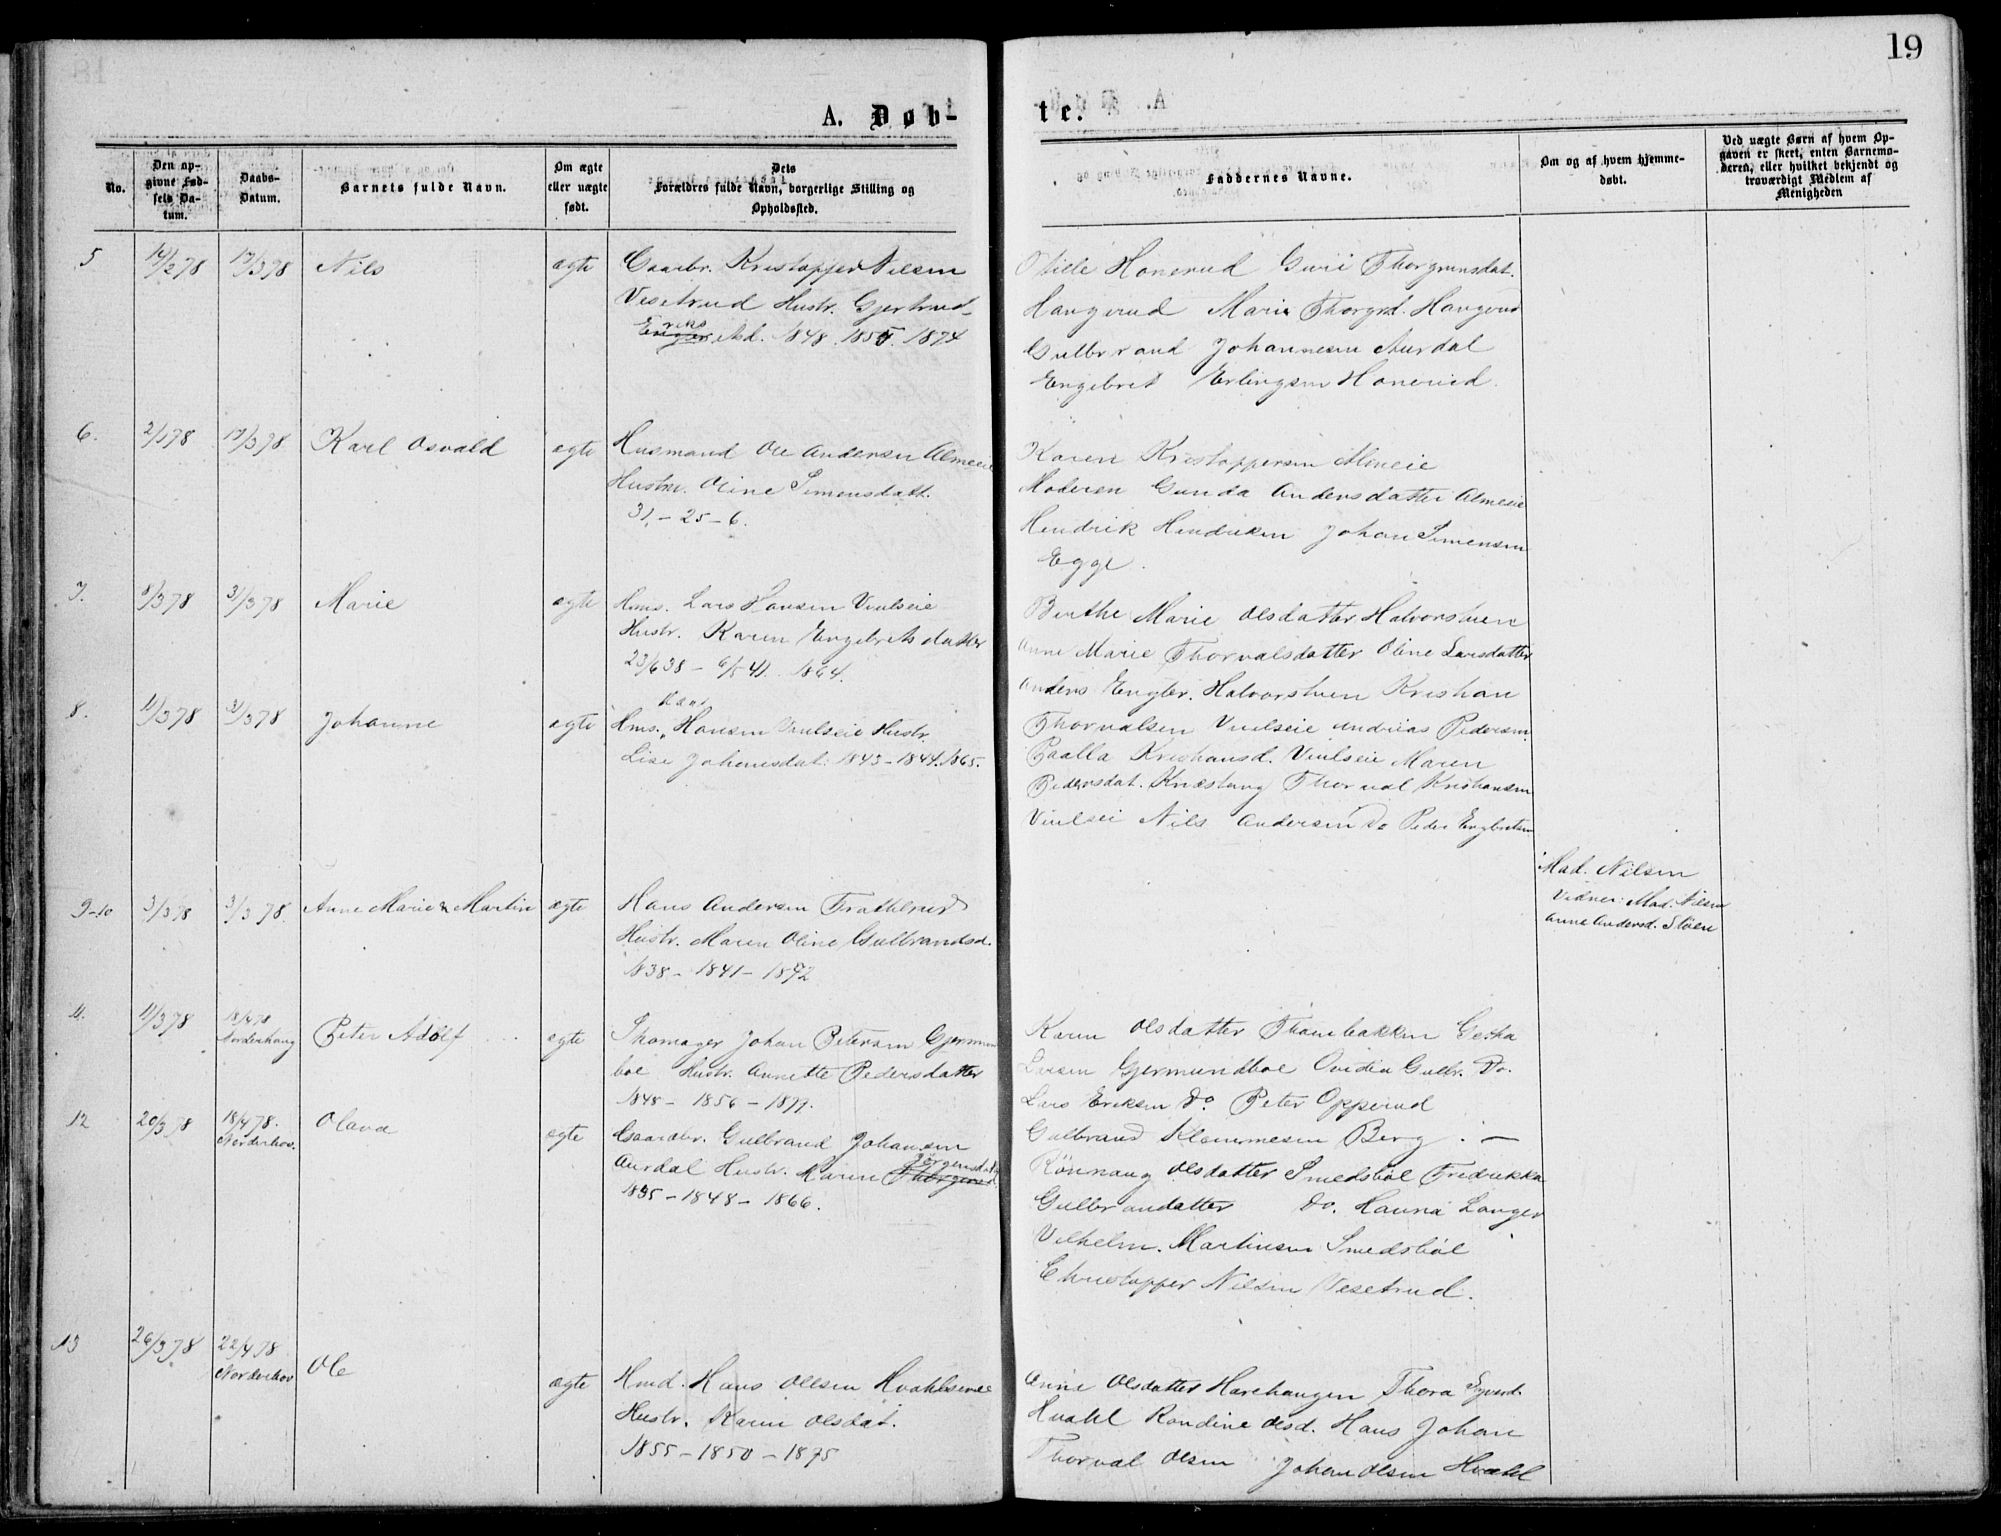 19
A. Døb-
te.
No.
Den op-
givne Fød-
sels Da-
tum.
Daabs-
Datum.
Barnets fulde Navn.
Om ægte
eller uægte
født.
Dets
Forældres fulde Navn, borgerlige Stilling og
Opholdssted.
Faddernes Navne.
Om og af hvem hjemme-
døbt.
Ved uægte Børn af hvem Op-
gaven er skeet, enten Barnemo-
deren, eller hvilket bekjendt og
troværdigt Medlem af
Menigheden
5
14/2 78
17/3 78
Nils
ægte
Gaarbr. Kristoffer Nilsen
Vesetrud Hustr. Gjertrud
Eriksdd. 1848. 1855. 1874
Otilie Honerud Guri Thorgrimsdat.
Haugerud Maria Thorgrd. Haugerud
Gulbrand Johannesen Aurdal
Engebret Erlingsen Honerud.
6.
2/3 78
17/3 78
Karl Osvald
ægte
Husmand Ole Andersen Almeie
Hustru. Oline Simensdatt.
31. - 25 - 6.
Karen Kristoffersen Almeie
Moderen Gunda Andersdatter Almeie
Hendrik Hendriksen Johan Simensen
Egge.
7.
8/3 78
31/3 78
Marie
ægte
Hms. Lars Hansen Viulseie
Hustr. Karen Engebretsdatter
23/6 38 - 6/5 41. 1864.
Berthe Marie Olsdatter Halvorstuen
Anne Marie Thorvalsdatter Oline Larsdatter
Anders Engbr. Halvorstuen Kristian
Thorvalsen Viulseie Andreas Pedersen.
8.
11/3 78
31/3 78
Johanne
ægte
Hans
Hms. Hansen Viulseie Hustr.
Lise Johanesdat: 1843 - 1844. 1865.
Paalla Kristiansd. Viulseie Maren
Pedersdat. Knæstang Thorval Kristiansen
Viulsei Nils Andersen Do Peder Engbretsen
9-10
3/3 78
3/3 78
Anne Marie & Martin
ægte
Hans Andersen
Hustr. Maren Oline Gulbrandsd.
1838 - 1841 - 1872
Mad. Nilsen
Vidner: Mad. Nilsen
Anne Andersd. Støen
11.
11/3 78
18/4 78
Norderhaug
Peter Adolf
ægte
Skomager Johan Petersen Gjermund
boe Hustr. Annette Pedersdatter
1848 - 1856 - 1877.
Karen Olsdatter Thonebakken
Larsen Gjermundboe Ovidia Gulbr. Do.
Lars Eriksen Do. Peter Opperud
Gulbrand Klemmesen Berg. -
12
20/3 78
18/4 78.
Norderhov.
Olava
ægte
Gaardbr. Gulbrand Johansen
Jørgensdatter
Aurdal Hustr. Maren
1835 - 1848 - 1866.
Rönnaug Olsdatter Smedsböl Fredrikka
Gulbrandatter Do. Hanna Langer
Vilhelm. Martinsen Smedsböl
Christoffer Nilsen Vesetrud.
13
26/3 78
22/4 78
Norderhov
Ole
ægte
Hmd. Hans Ollsen Hvahlseie
Hustr. Karen Olsdat.
1855 - 1850 - 1875
Anne Olsdatter Harehaugen Thora
Hvahl Randine Olsd. Hans Johan
Thorval Olsen Johan Olsen Hvahl